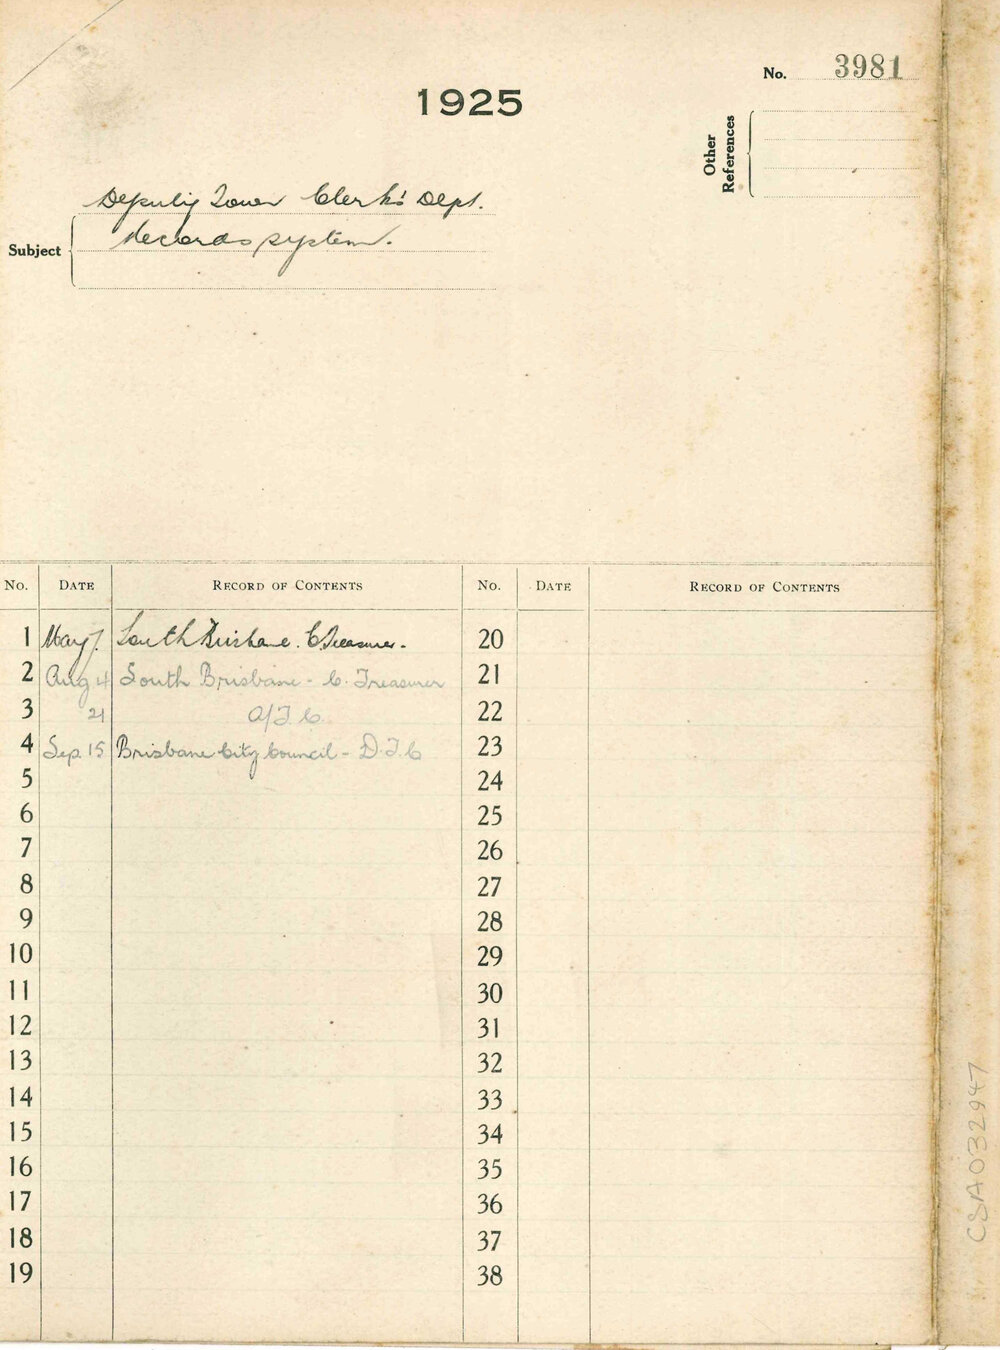 No. 3981
1925
Other
References
Deputy Town Clerk's Dept.
Subject
Records system.
No. DATE RECORD OF CONTENTS No. DATE RECORD OF CONTENTS
1 May 7. South Brisbane. C. Treasurer. 20
2 Aug 4 South Brisbane - C. Treasurer 21
3 21 A/T.C. 22
4 Sep 15 Brisbane City Council - D.T.C 23
5 24
6 25
7 26
8 27
9 28
10 29
11 30
12 31
13 32
14 33
15 34
16 35
17 36
18 37
19 38
CSA032947